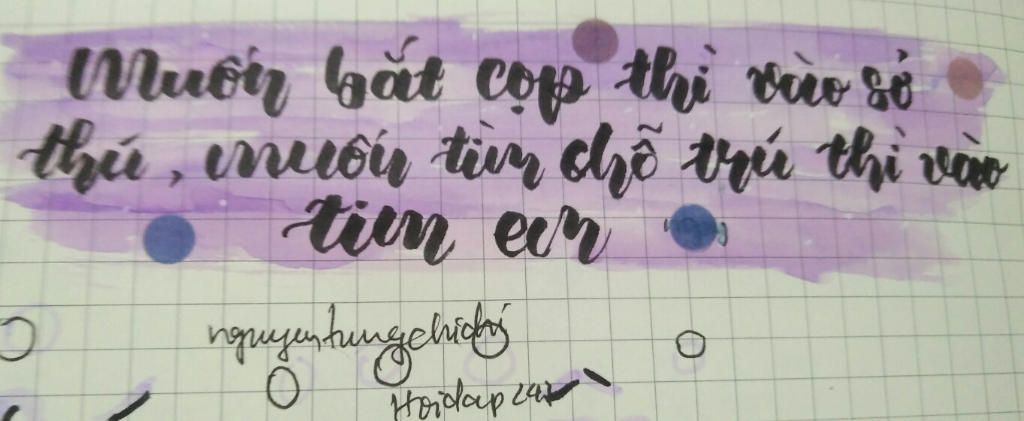 Muốn bắt cọp thì vào sở
thú, muốn tìm chỗ trú thì vào
tim em
nguyentungchichi
Hoidap247